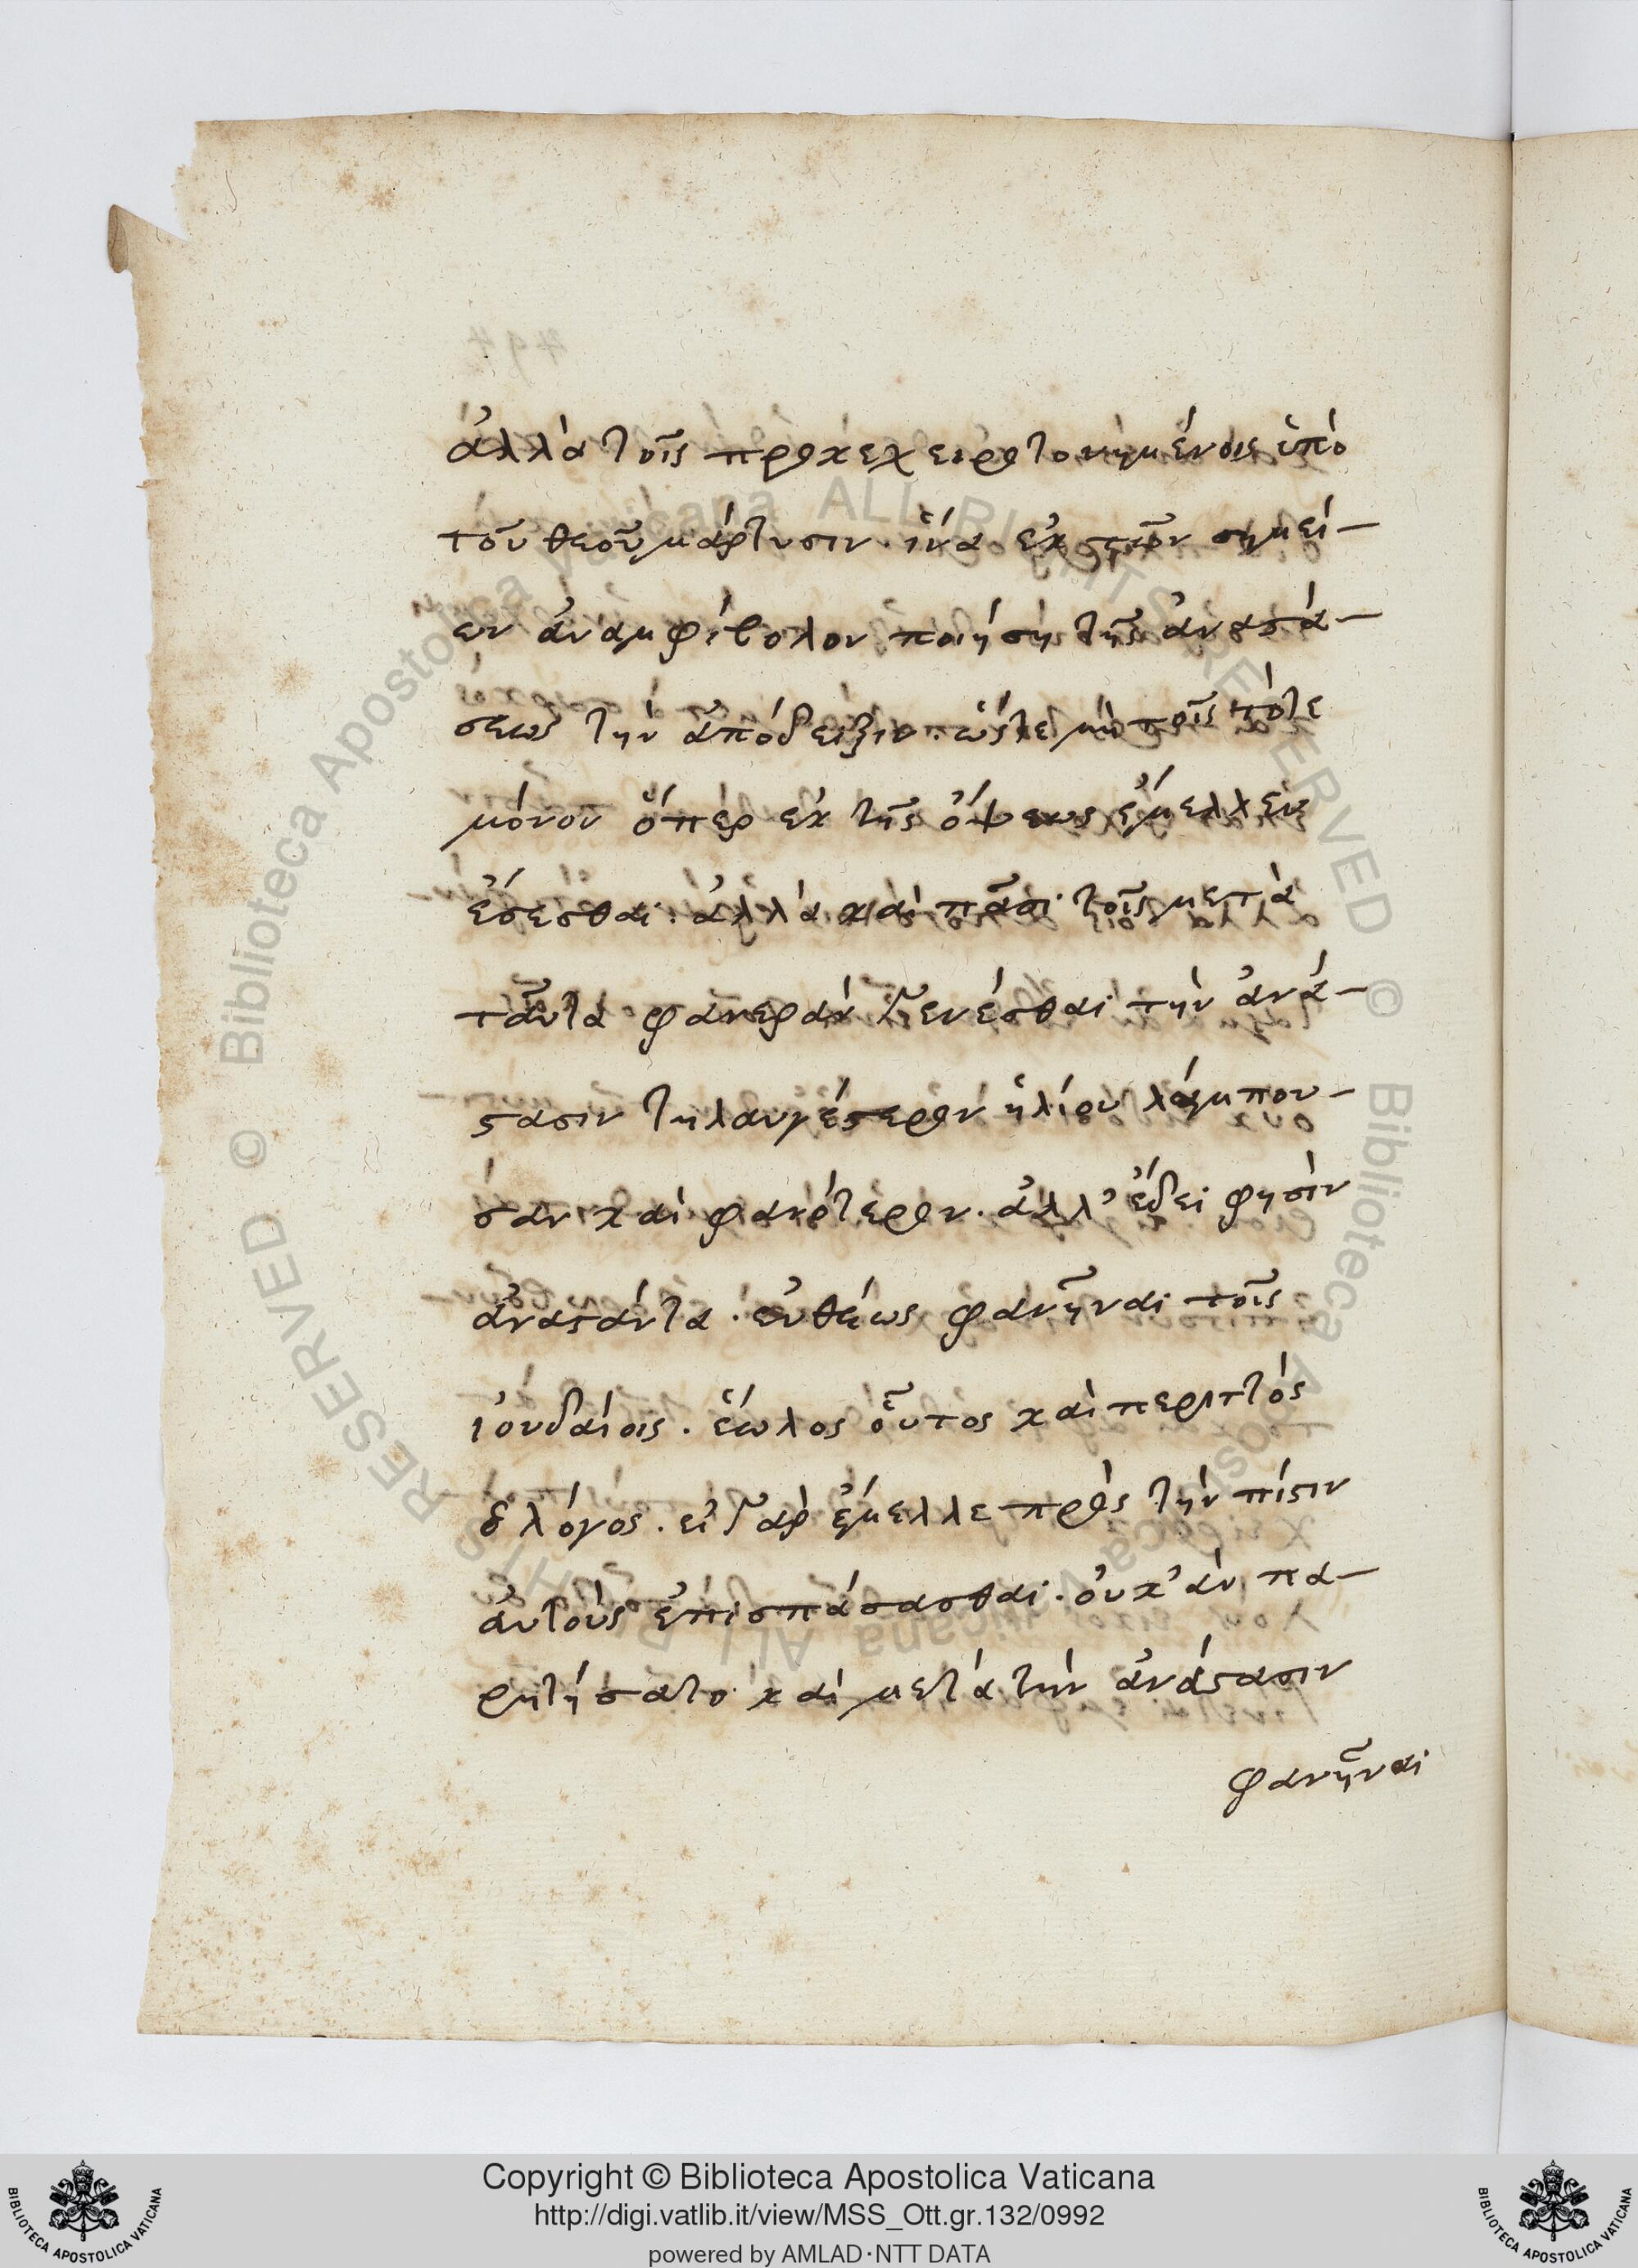 ἀλλὰ τοῖς προκεχειροτονημένοις ὑπὸ
τοῦ θεοῦ μάρτυσιν. ἵνα ἐκ τῶν σημεί-
ων ἀναμφίβολον ποιήσῃ τῆς ἀναστά-
σεως τὴν ἀπόδειξιν. ὥστε μὴ τοῖς τότε
μόνον ὅπερ ἐκ τῆς ὄψεως ἔμελλεν
ἔσεσθαι. ἀλλὰ καὶ πᾶσι τοῖς μετὰ
ταῦτα φανερὰν γενέσθαι τὴν ἀνά-
στασιν τηλαυγέστερον ἡλίου λάμπου-
σαν καὶ φανότερον. ἀλλ' ἔδει φησὶν
ἀναστάντα. εὐθέως φανῆναι τοῖς
ἰουδαίοις. ἕωλος οὗτος καὶ περιττὸς
ὁ λόγος. εἰ γὰρ ἔμελλε πρὸς τὴν πίστιν
ἀυτοὺς ἐπισπάσασθαι. οὐκ ἂν πα-
ρητήσατο καὶ μετὰ τὴν ἀνάστασιν
φανῆναι
Copyright © Biblioteca Apostolica Vaticana
http://digi.vatlib.it/view/MSS_Ott.gr.132/0992
powered by AMLAD·NTT DATA
BIBLIOTECA APOSTOLICA VATICANA
BIBLIOTECA APOSTOLICA VATICANA